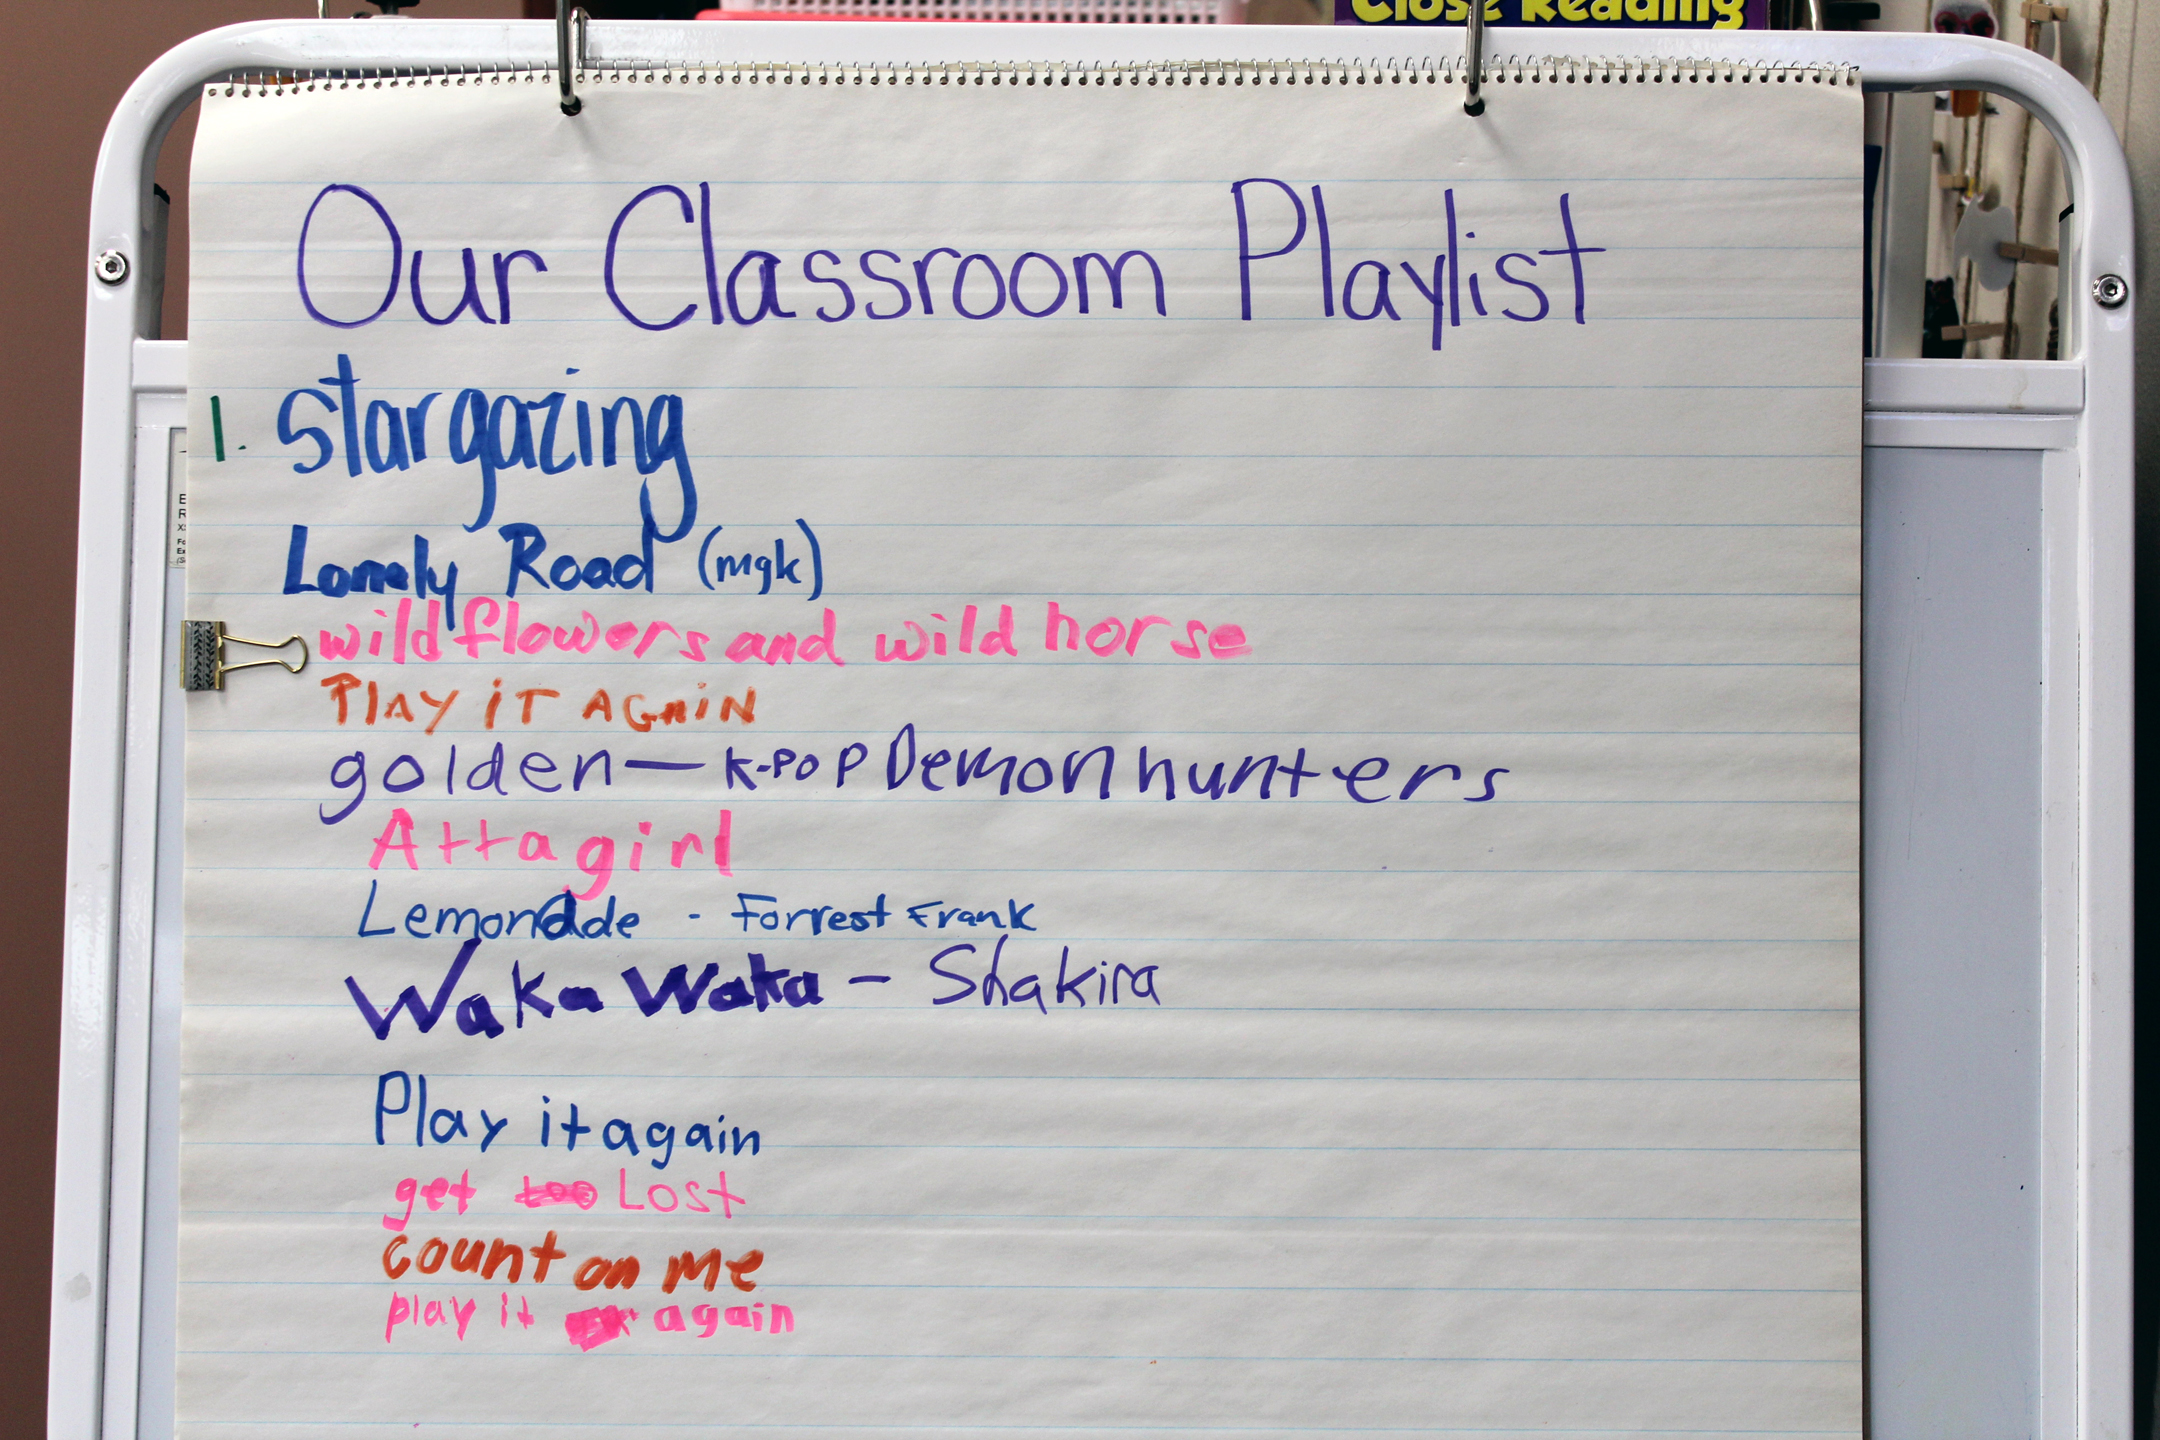 Close Reading
Our Classroom Playlist
1. stargazing
Lonely Road (mgk)
wild flowers and wild horse
PlAY iT AGAiN
golden — K-POP Demon hunters
Atta girl
Lemonade - Forrest Frank
Waka Waka - Shakira
Play it again
get too Lost
count on me
play it again